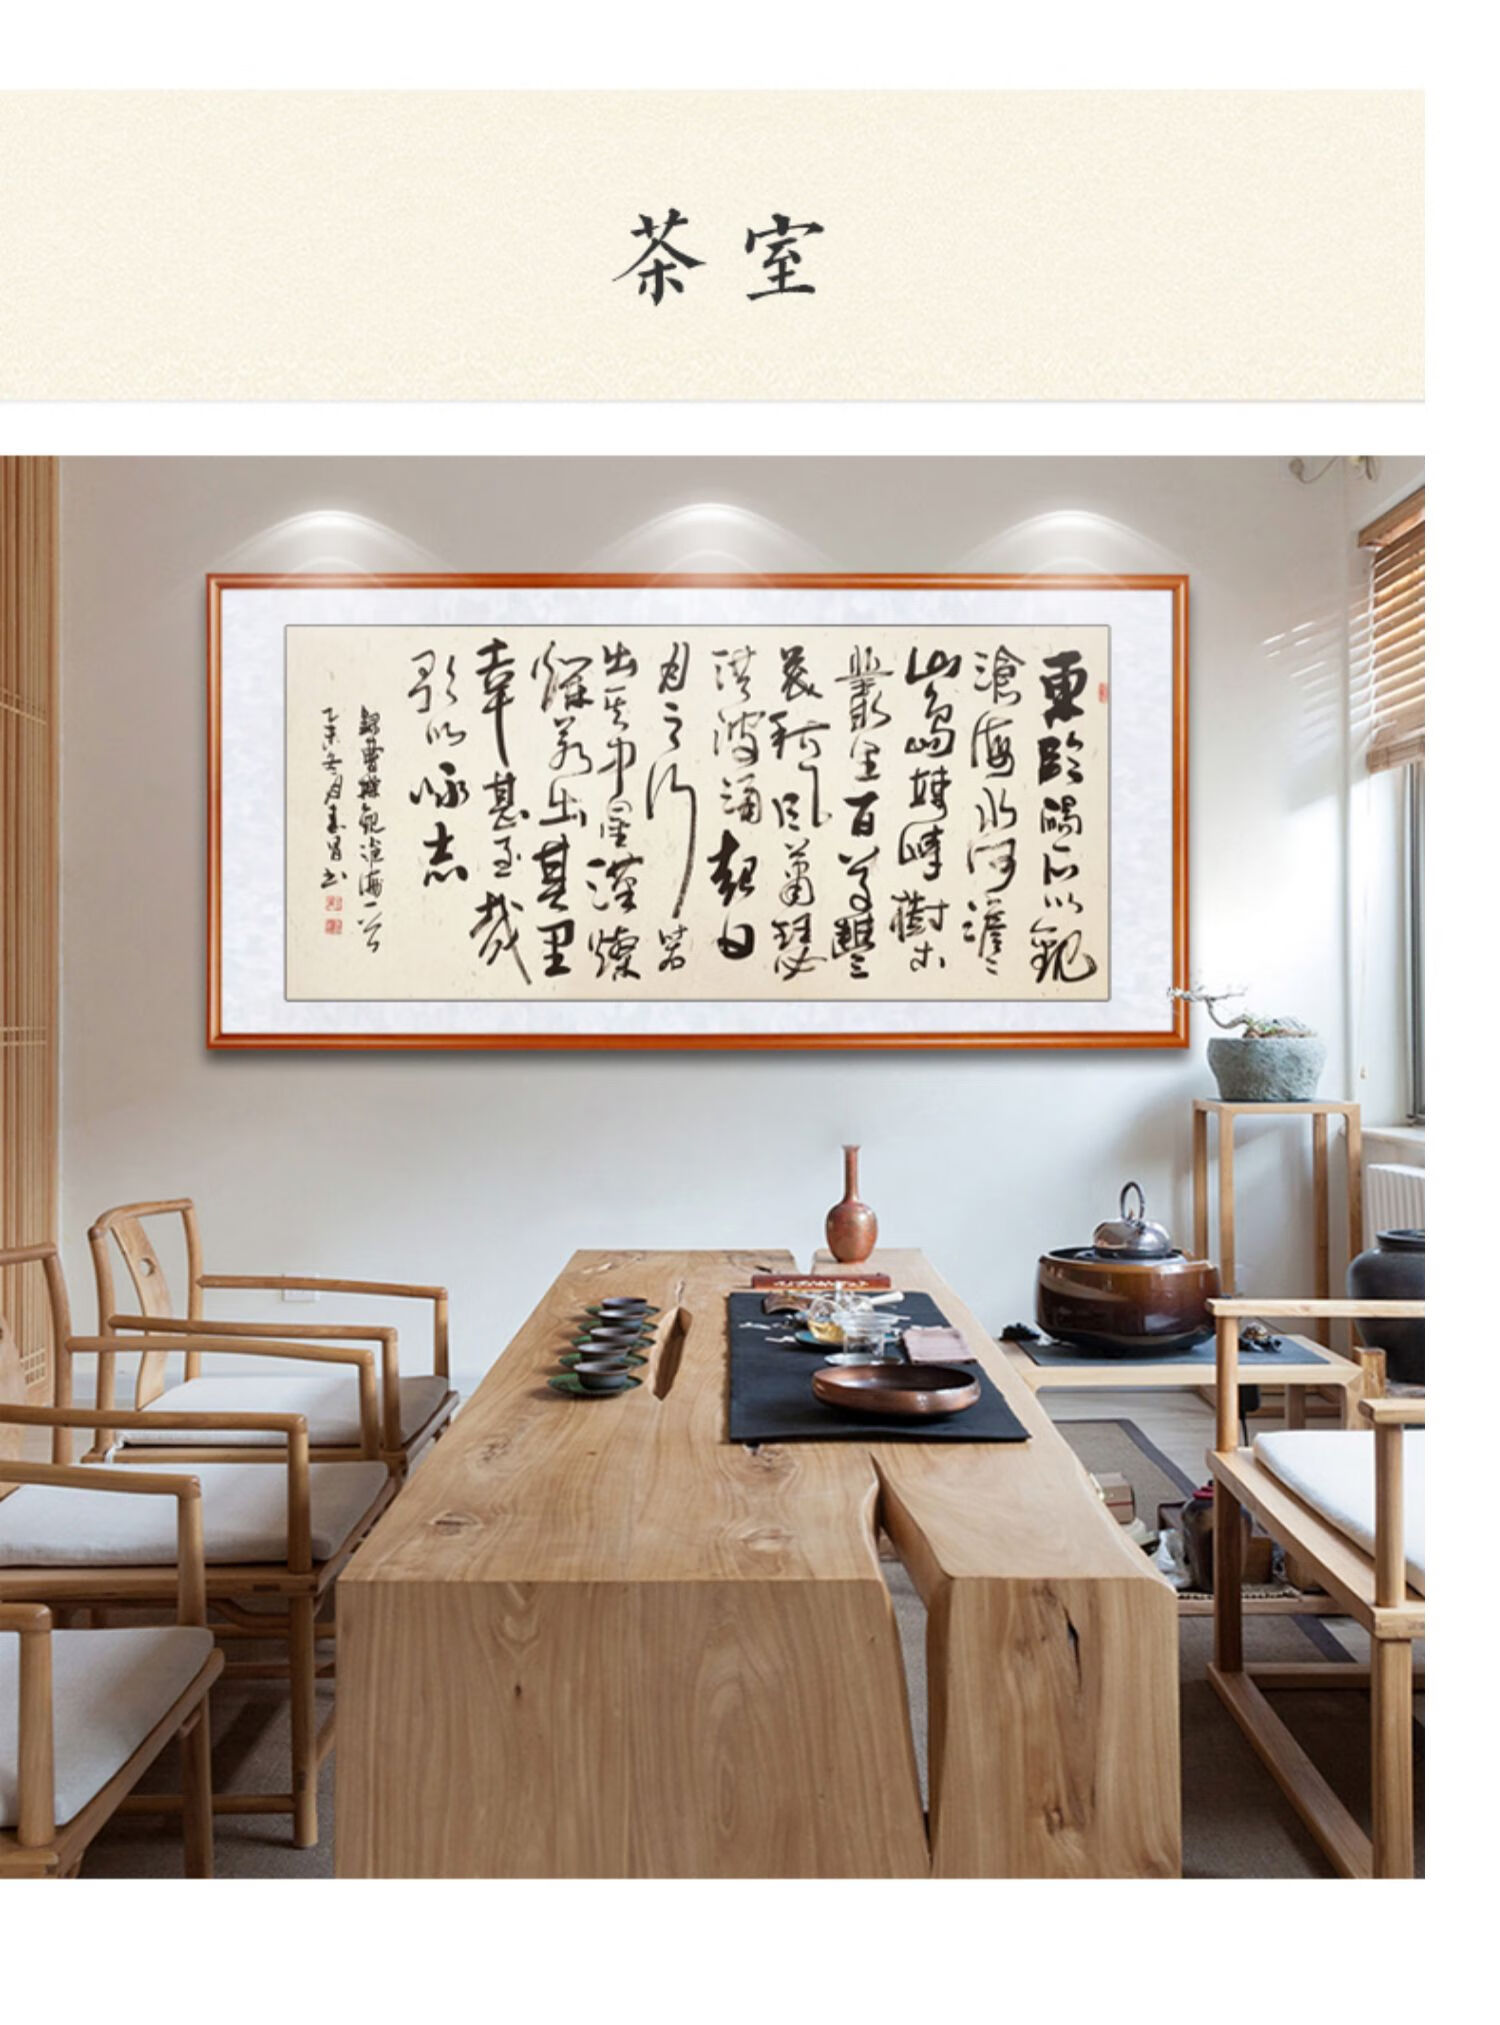 茶室
東臨碣石以觀
滄海水何澹〻
山島竦峙樹木
叢生百草豐
茂秋風蕭瑟
洪波涌起日
月之行若
出其中星漢燦
爛若出其里
幸甚至哉
歌以咏志
錄曹操觀滄海一首
乙未冬月书